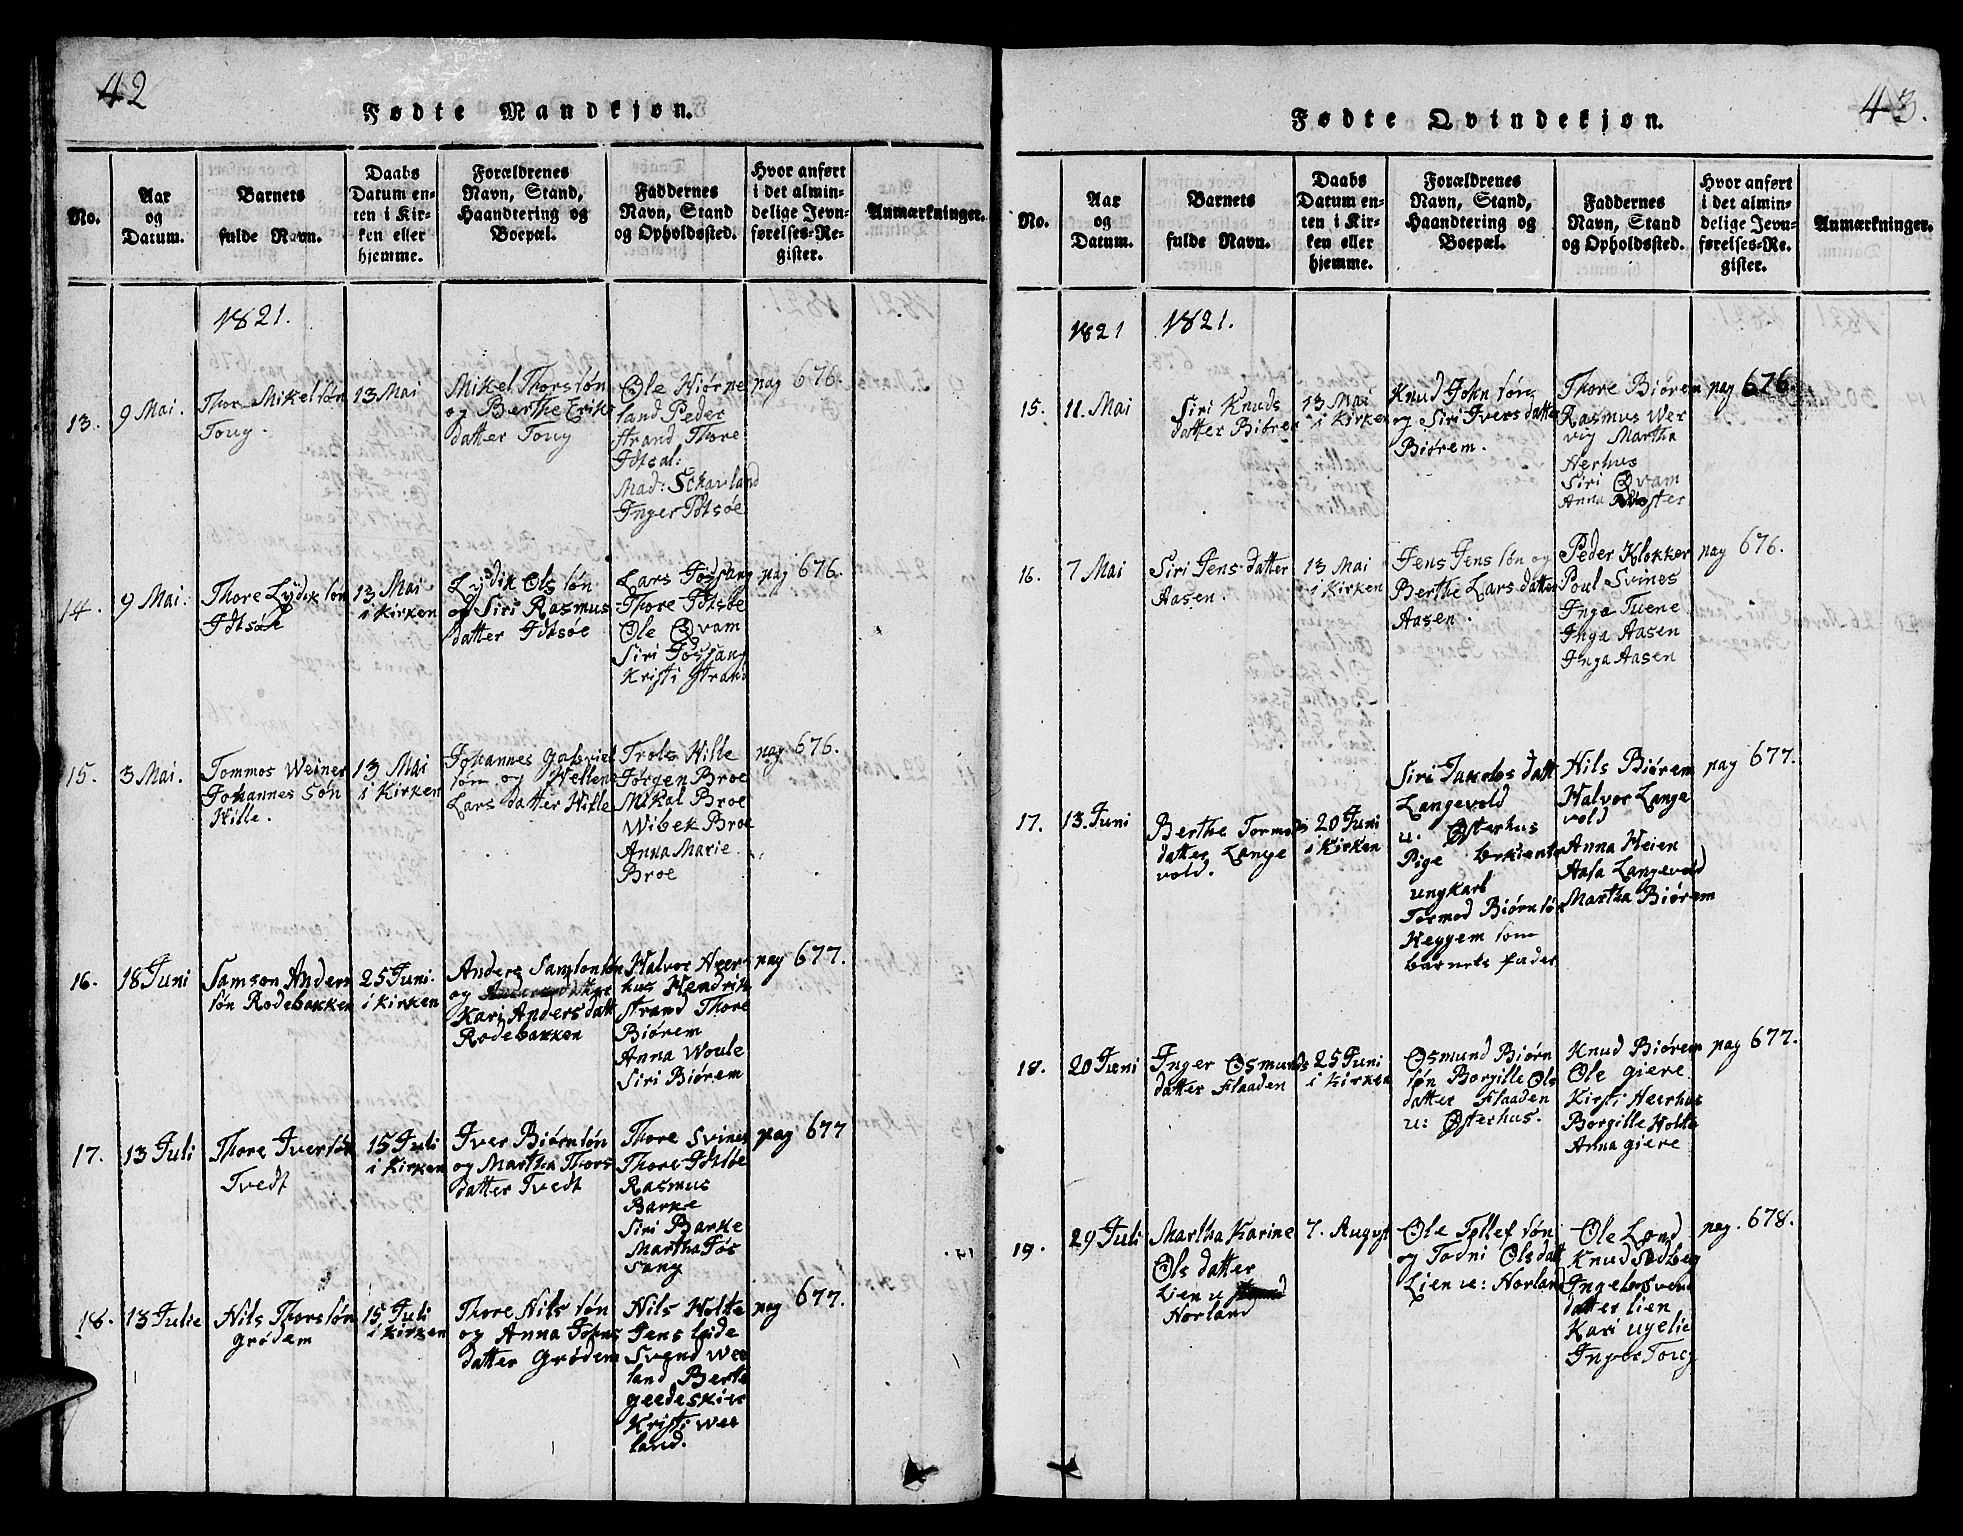 42
Fødte Mandkjøn.
No.
Aar
og
Datum.
Barnets
fulde Navn.
Daabs
Datum en-
ten i Kir-
ken eller
hjemme.
Forældrenes
Navn, Stand,
Haandtering og
Boepæl.
Faddernes
Navn, Stand
og Opholdssted.
Hvor anført
i det almin-
delige Jevn-
førelses-Re-
gister.
Anmærkninger.
1821.
13.
9 Mai.
Thor Mikelsøn
Toug.
13 Mai
Mikel Thorssøn
og Berthe Eriks
datter Toug
Ole Hiørpe
land Peder
strand Thore
Idtsal:
Mad: Schavland
Inger Idtsøe
pag 676.
14.
9 Mai.
Thore Lydik søn
Idtsøe
13 Mai
i Kirken
Lydik Ols søn
og Siri Rasmus
datter Idtsøe
Lars Fossang
Thore Idtsøe
Ole Qvam
Siri Fossang
Kristi Strand
pag 676.
15.
3 Mai.
Tommos Weiner
Johannes søn
Hille.
13 Mai
i Kirken
Johannes Gabriel
søn og Hellene
Lars datter Hille
Trols Hille
Jørgen Broe
Mikal Broe
Wibek Broe
Anna Marie
Broe
pag 676.
16.
18 Juni
Samson Anders
søn Rodebakken
25 Juni
i Kirken
Anders Samsonsøn
og
Kari Anders datt
Rodebakken
Halvor Heer-
hus Hendrik
strand Thore
Biørem
Anna Woule
Siri Biørem
pag 677.
17.
13 Juli
Thore Iversøn
Tvedt
15 Juli
i Kirken
Iver Biørnsøn
og Martha Thors
datter Tvedt
Thore Svines
Thore Idtsøe
Rasmus
Barke
Siri Barke
Martha Fos
sang
pag 677
18.
13 Julie
Nils Thorssøn
Grødem
15 Juli
i Kirken
Thore Nils søn
og Anna Johns
datter Grødem
Nils Holte
Jens Leide
Svend Wee
land Berte
geedeskier
Kristi Wee
land.
pag 677.
43.
Fødte Qvindekjøn.
No.
Aar
og
Datum.
Barnets
fulde Navn.
Daabs
Datum en-
ten i Kir-
ken eller
hjemme.
Forældrenes
Navn, Stand,
Haandtering og
Boepæl.
Faddernes
Navn, Stand
og Opholdssted.
Hvor anført
i det almin-
delige Jevn-
førelses-Re-
gister.
Anmærkninger.
1821
1821.
15.
11. Mai
Siri Knuds
datter Biørem
13 Mai
i Kirken
Knud John søn
og Siri Ivers datter
Biørem.
Thore Biørem
Rasmus Wer
vig Martha
Herhus
Siri Qvam
Anna
pag 676.
16.
7 Mai
Siri Jens datter
Aasen.
13 Mai
i Kirken
Jens Jens søn og
Berthe Lars datter
Aasen.
Peder Klokker
Poul Svines
Inga Tuene
Inga Aasen
Inga Aasen
pag 676.
17.
13. Juni
Berthe Tormods
datter Lange
vold.
20 Juni
i Kirken
Siri Jakobs datt
Langevold
u. Østerhus
Pige bekiente
ungkarl
Tormod Biørnsøn
Heggem som
barnets fader
Nils Biørem
Halvor Lange
vold
Anna Heien
Aasa Langevold
Martha Biørem
pag 677.
18.
20 Juni
Inger Osmunds
datter Flaaden
25 Juni
i Kirken
Osmund Biørn
søn Borgille Ols
datter Flaaden
u: Østerhus.
Knud Biørem
Ole giere
Kirsti Heerhus
Borgille Holte
Anna giere
pag 677.
19.
29 Juli
Martha Karine
Ols datter
Lien u
Norland
7. August
Ole Tollef søn
og Todni Ols datt
Lien u: Norland
Ole Land
Knud Sedberg
Ingeb
datter lien
Kari ugelie
Inger Toug
pag. 678.